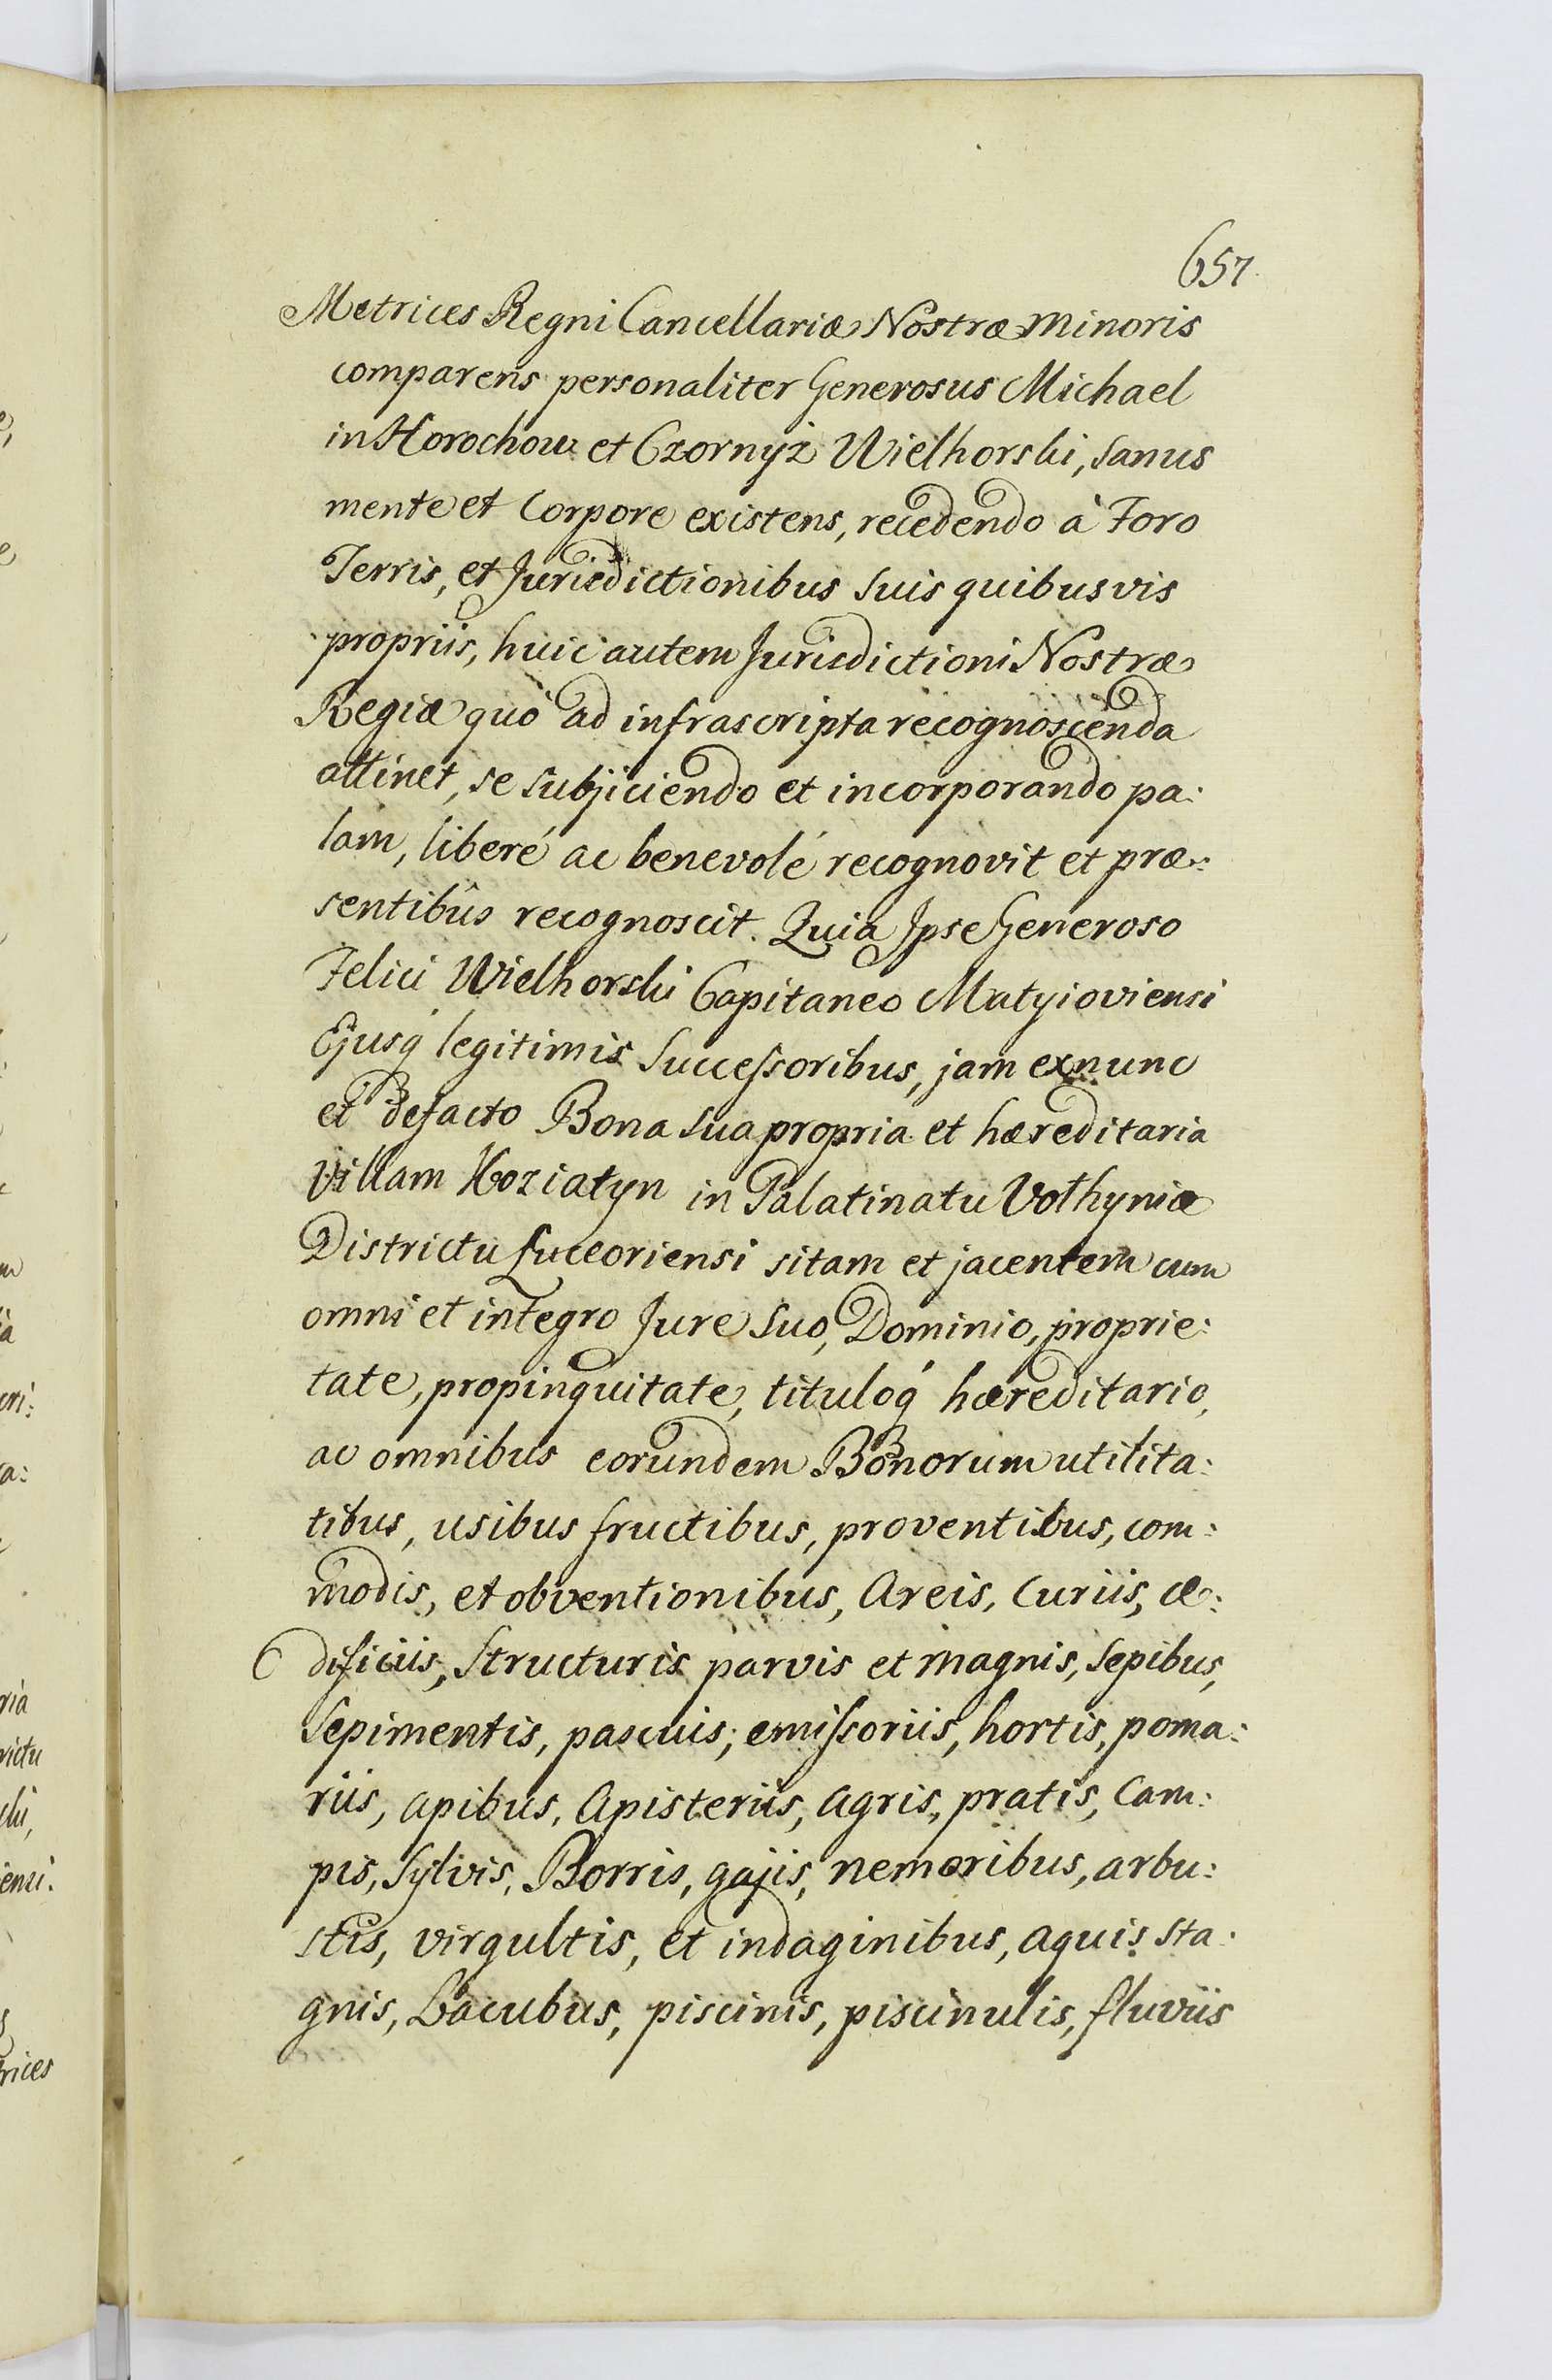 657
Metrices Regni Cancellariæ Nostræ Minoris
comparens personaliter Generosus Michael
in Horochow et Czornyż Wielhorski, Sanus
mente et Corpore existens, recedendo à Foro
Terris, et Jurisdictionibus Suis quibusvis
propriis, huic autem Jurisdictioni Nostræ
Regiæ quò ad infrascripta recognoscenda
attinet, se subjiciendo et incorporando pa:
lam, liberé ac benevolé recognovit et præ:
sentibûs recognoscit. Quia Ipse Generoso
Felici Wielhorski Capitaneo Matyioviensi
Ejusq́ legitimis Successoribus, jam exnunc
et defacto Bona sua propria et hæreditaria
Villam Koziatyn in Palatinatu Volhyniæ
Districtu Luceoriensi sitam et jacentem cum
omni et integro Jure Suo, Dominio, proprie:
tate, propinquitate, tituloq́ hæreditario,
ac omnibus eorundem Bonorum utilita:
tibus, usibus fructibus, proventibus, com:
modis, et obventionibus, Areis, Curiis, æ:
dificiis, Structuris parvis et magnis, Sepibus,
Sepimentis, pascuis, emissoriis, hortis, poma:
riis, apibus, Apisteriis, Agris, pratis, Cam:
pis, Sylvis, Borris, gajis, nemoribus, arbu:
stis, virgultis, et indaginibus, aquis sta:
gnis, Lacubus, piscinis, piscinulis, fluviis